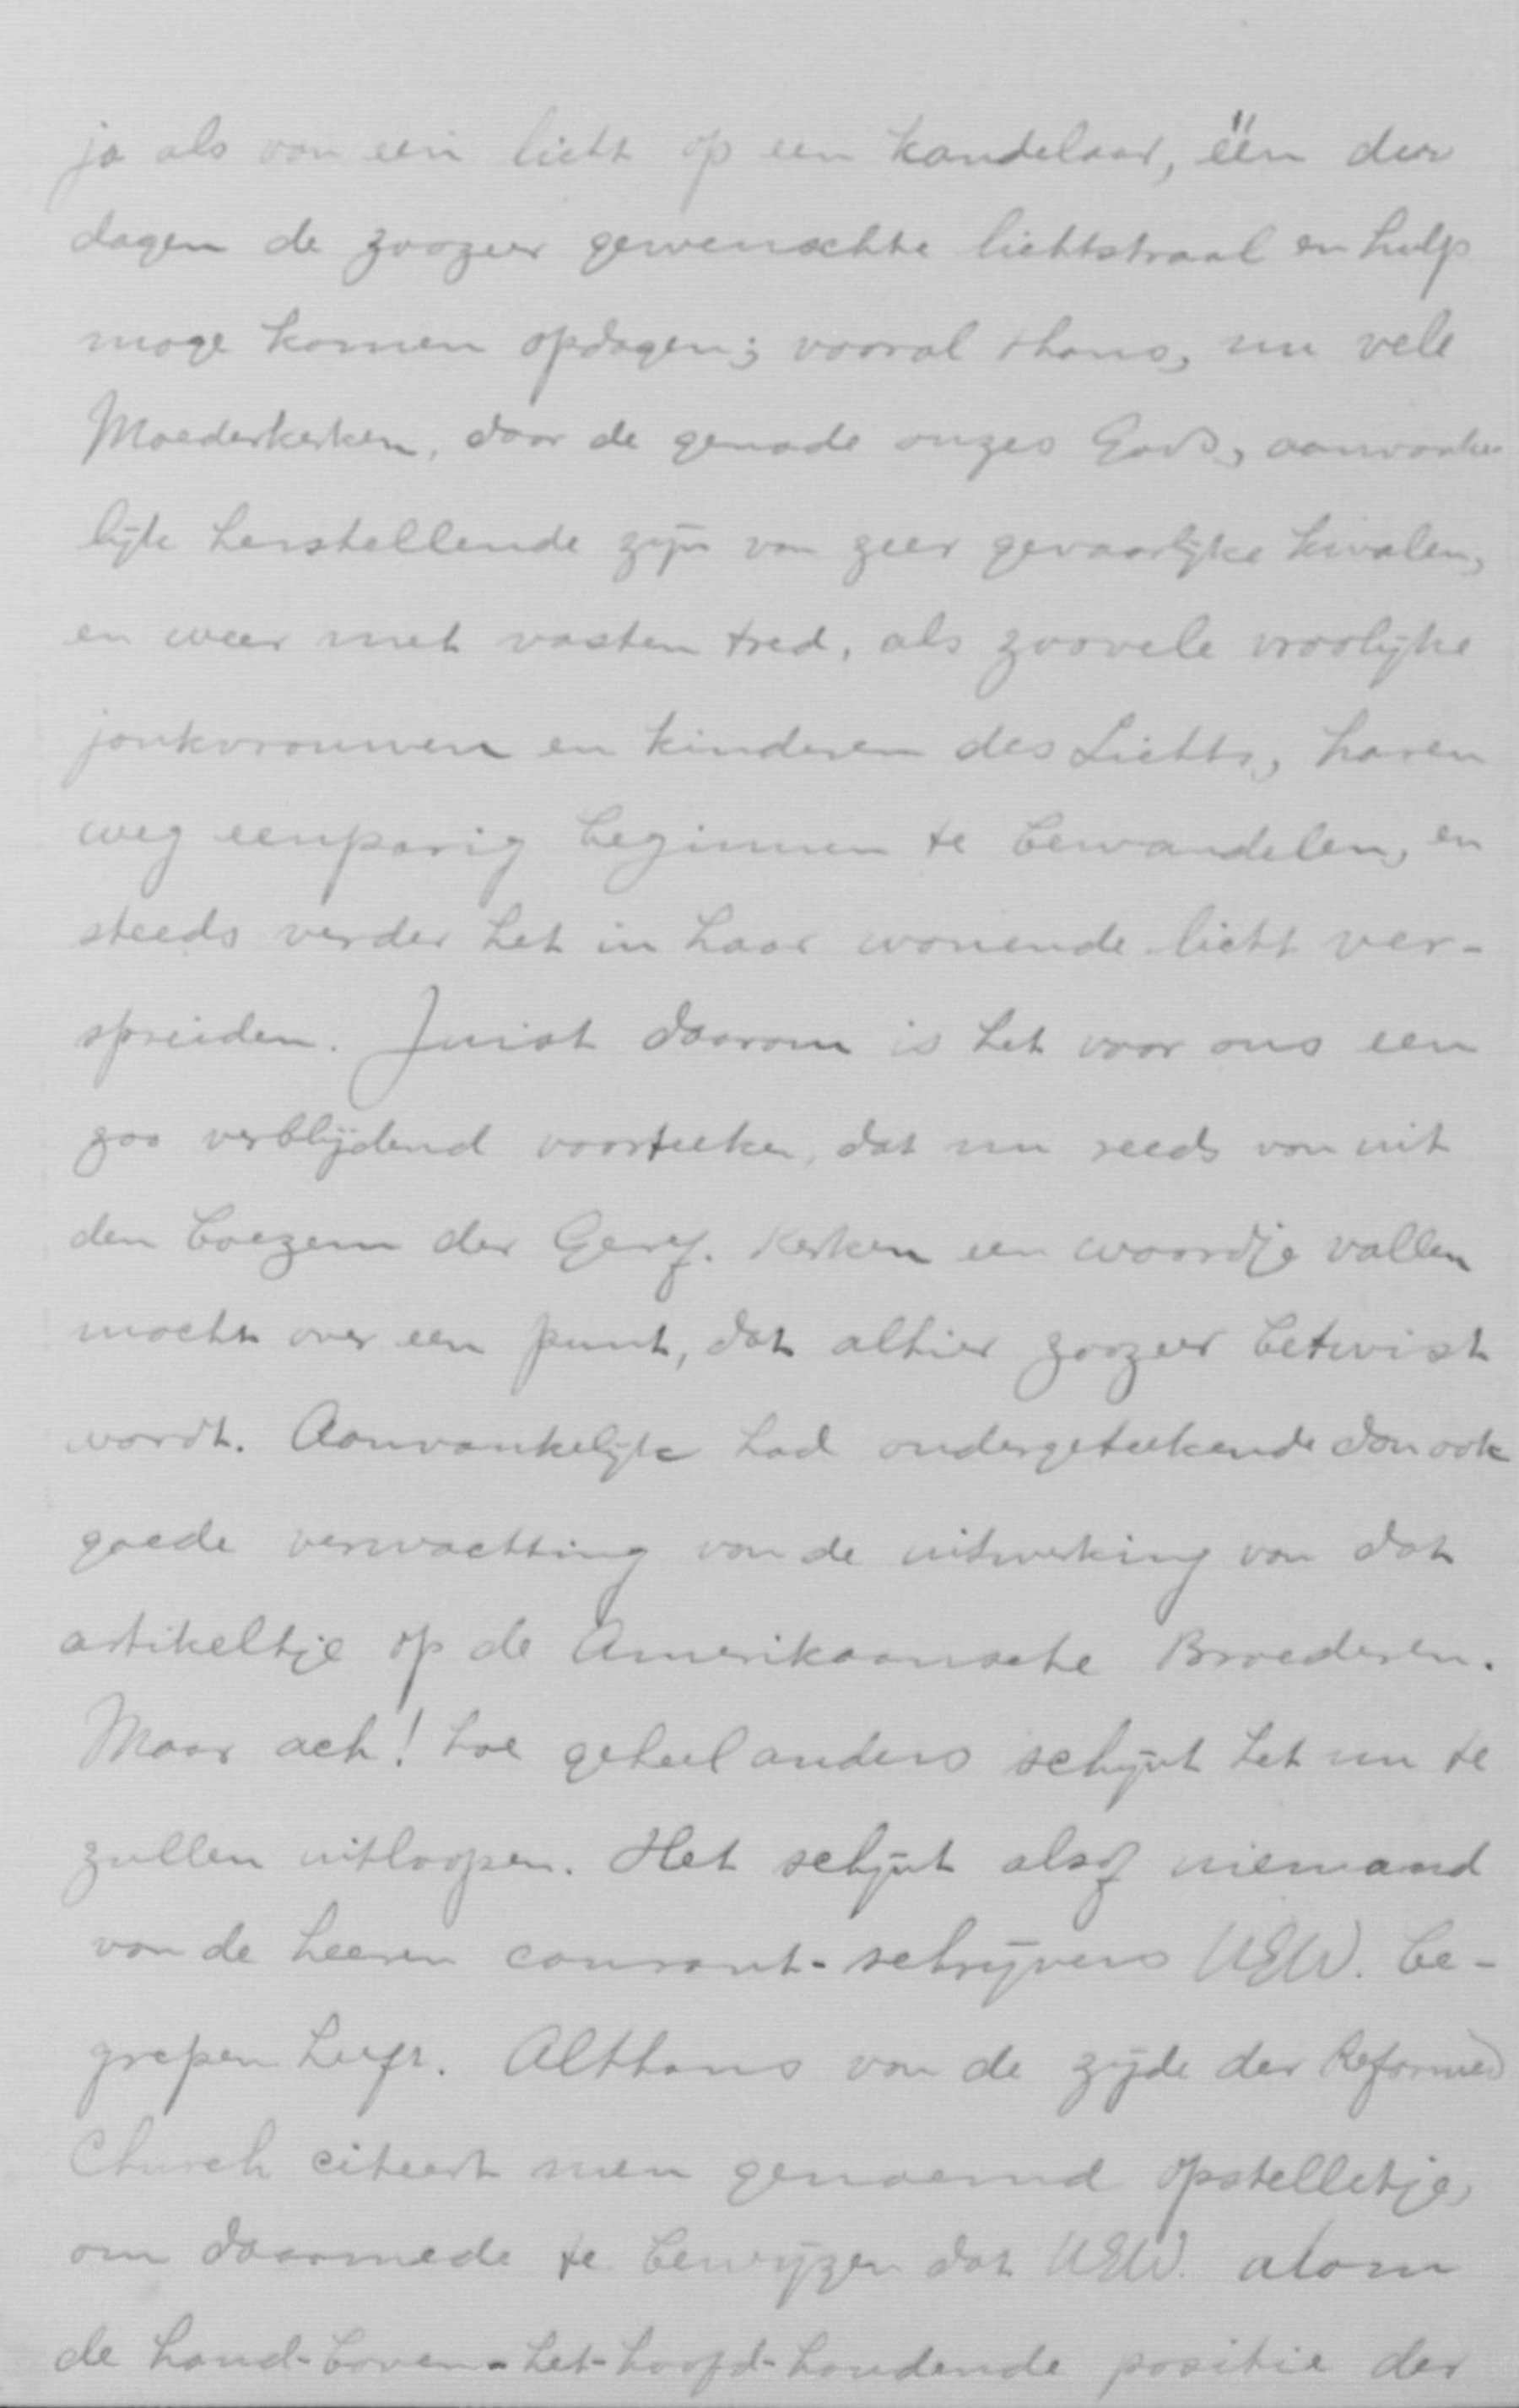 ja als van een licht op een kandelaar, één der
dagen de zoozeer gewenschte lichtstraal en hulp
moge komen opdagen; vooral thans, nu vele
Moederkerken, door de genade onzes Gods, aanvanke-
lijk herstellende zijn van zeer gevaarlijke kwalen,
en weer met vasten tred, als zoovele vroolijke
jonkvrouwen en kinderen des Lichts, haren
weg eenparig beginnen te bewandelen, en
steeds verder het in haar wonende licht ver-
spreiden. Juist daarom is het voor ons een
zoo verblijdend voorteeken, dat nu reeds van uit
den boezem der Geref. Kerken een woordje vallen
mocht over een punt, dat alhier zoozeer betwist
wordt. Aanvankelijk had ondergeteekende dan ook
goede verwachting van de uitwerking van dat
artikeltje op de Amerikaansche Broederen.
Maar ach! hoe geheel anders schijnt het nu te
zullen uitloopen. Het schijnt alsof niemand
van de heeren courant-schrijvers UEW. be-
grepen heeft. Althans van de zijde der Reformed
Church citeert men genoemd opstelletje,
om daarmede te bewijzen dat UEW. alom
de hand-boven-het-hoofd-houdende positie der